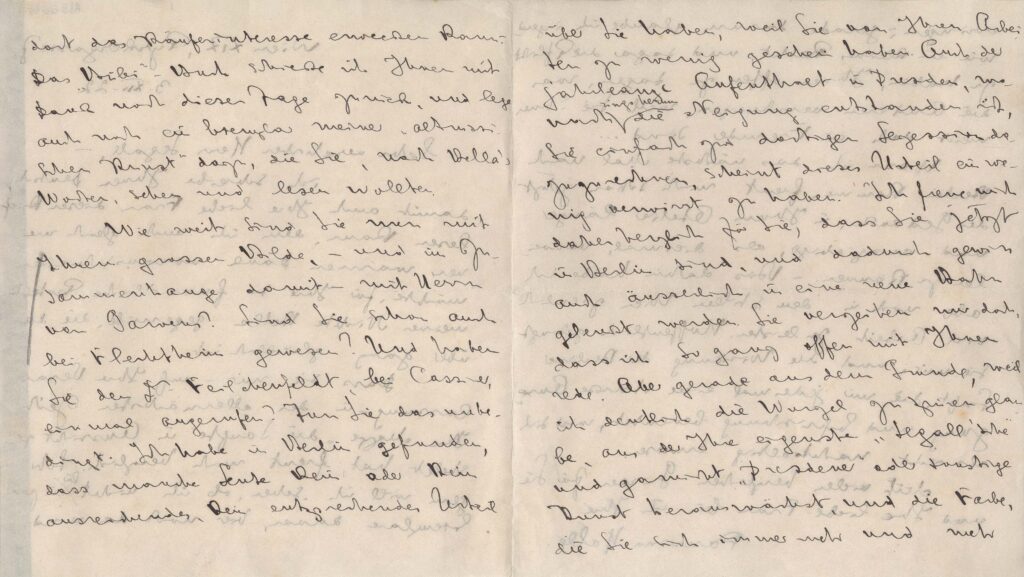 dort das Käuferinteresse erwecken kann.
Das Bibi-Buch schicke ich Ihnen mit
Dank noch dieser Tage zurück, und lege
auch noch ein Exemplar meine „altrussi
schen Kunst" dazu, die Sie, nach Bella's
Worten, sehen und lesen wollten.
Wie weit sind Sie nun mit
Ihrem grossen Bilde, – und in Zu-
sammenhange damit – mit Herrn
von Garvens? Sind Sie schon auch
bei Flechtheim gewesen? Und haben
Sie den Dr Feilchenfeldt, bei Cassirer,
einmal angerufen? Tun Sie das unbe-
dingt. Ich habe in Berlin gefunden,
dass manche Leute kein oder kein
ausreichendes kein entsprechendes Urteil
über Sie haben, weil Sie von Ihren Arbei
ten zu wenig gesehen haben. Auch der
jahrelange Aufenthalt in Dresden, wo
durch die Neigung entstanden ist,
ringsherum
Sie einfach zur dortigen Sezession da
zuzurechnen, scheint dieses Urteil ein we-
nig verwirrt zu haben. Ich freue mich
daher herzlich für Sie, dass Sie jetzt
in Berlin sind und dadurch gewiss
auch äusserlich in eine neue Bahn
gelenkt werden. Sie verzeihen mir doch,
dass ich so ganz offen mit Ihnen
rede. Aber gerade aus dem Grunde, weil
ich deutlich die Wurzel zu spüren glau
be, aus der Ihre eigenste „Segall'sche"
und garnicht „Dresdener" oder sonstige
Kunst herauswächst und die Farbe,
die Sie sich immer mehr und mehr